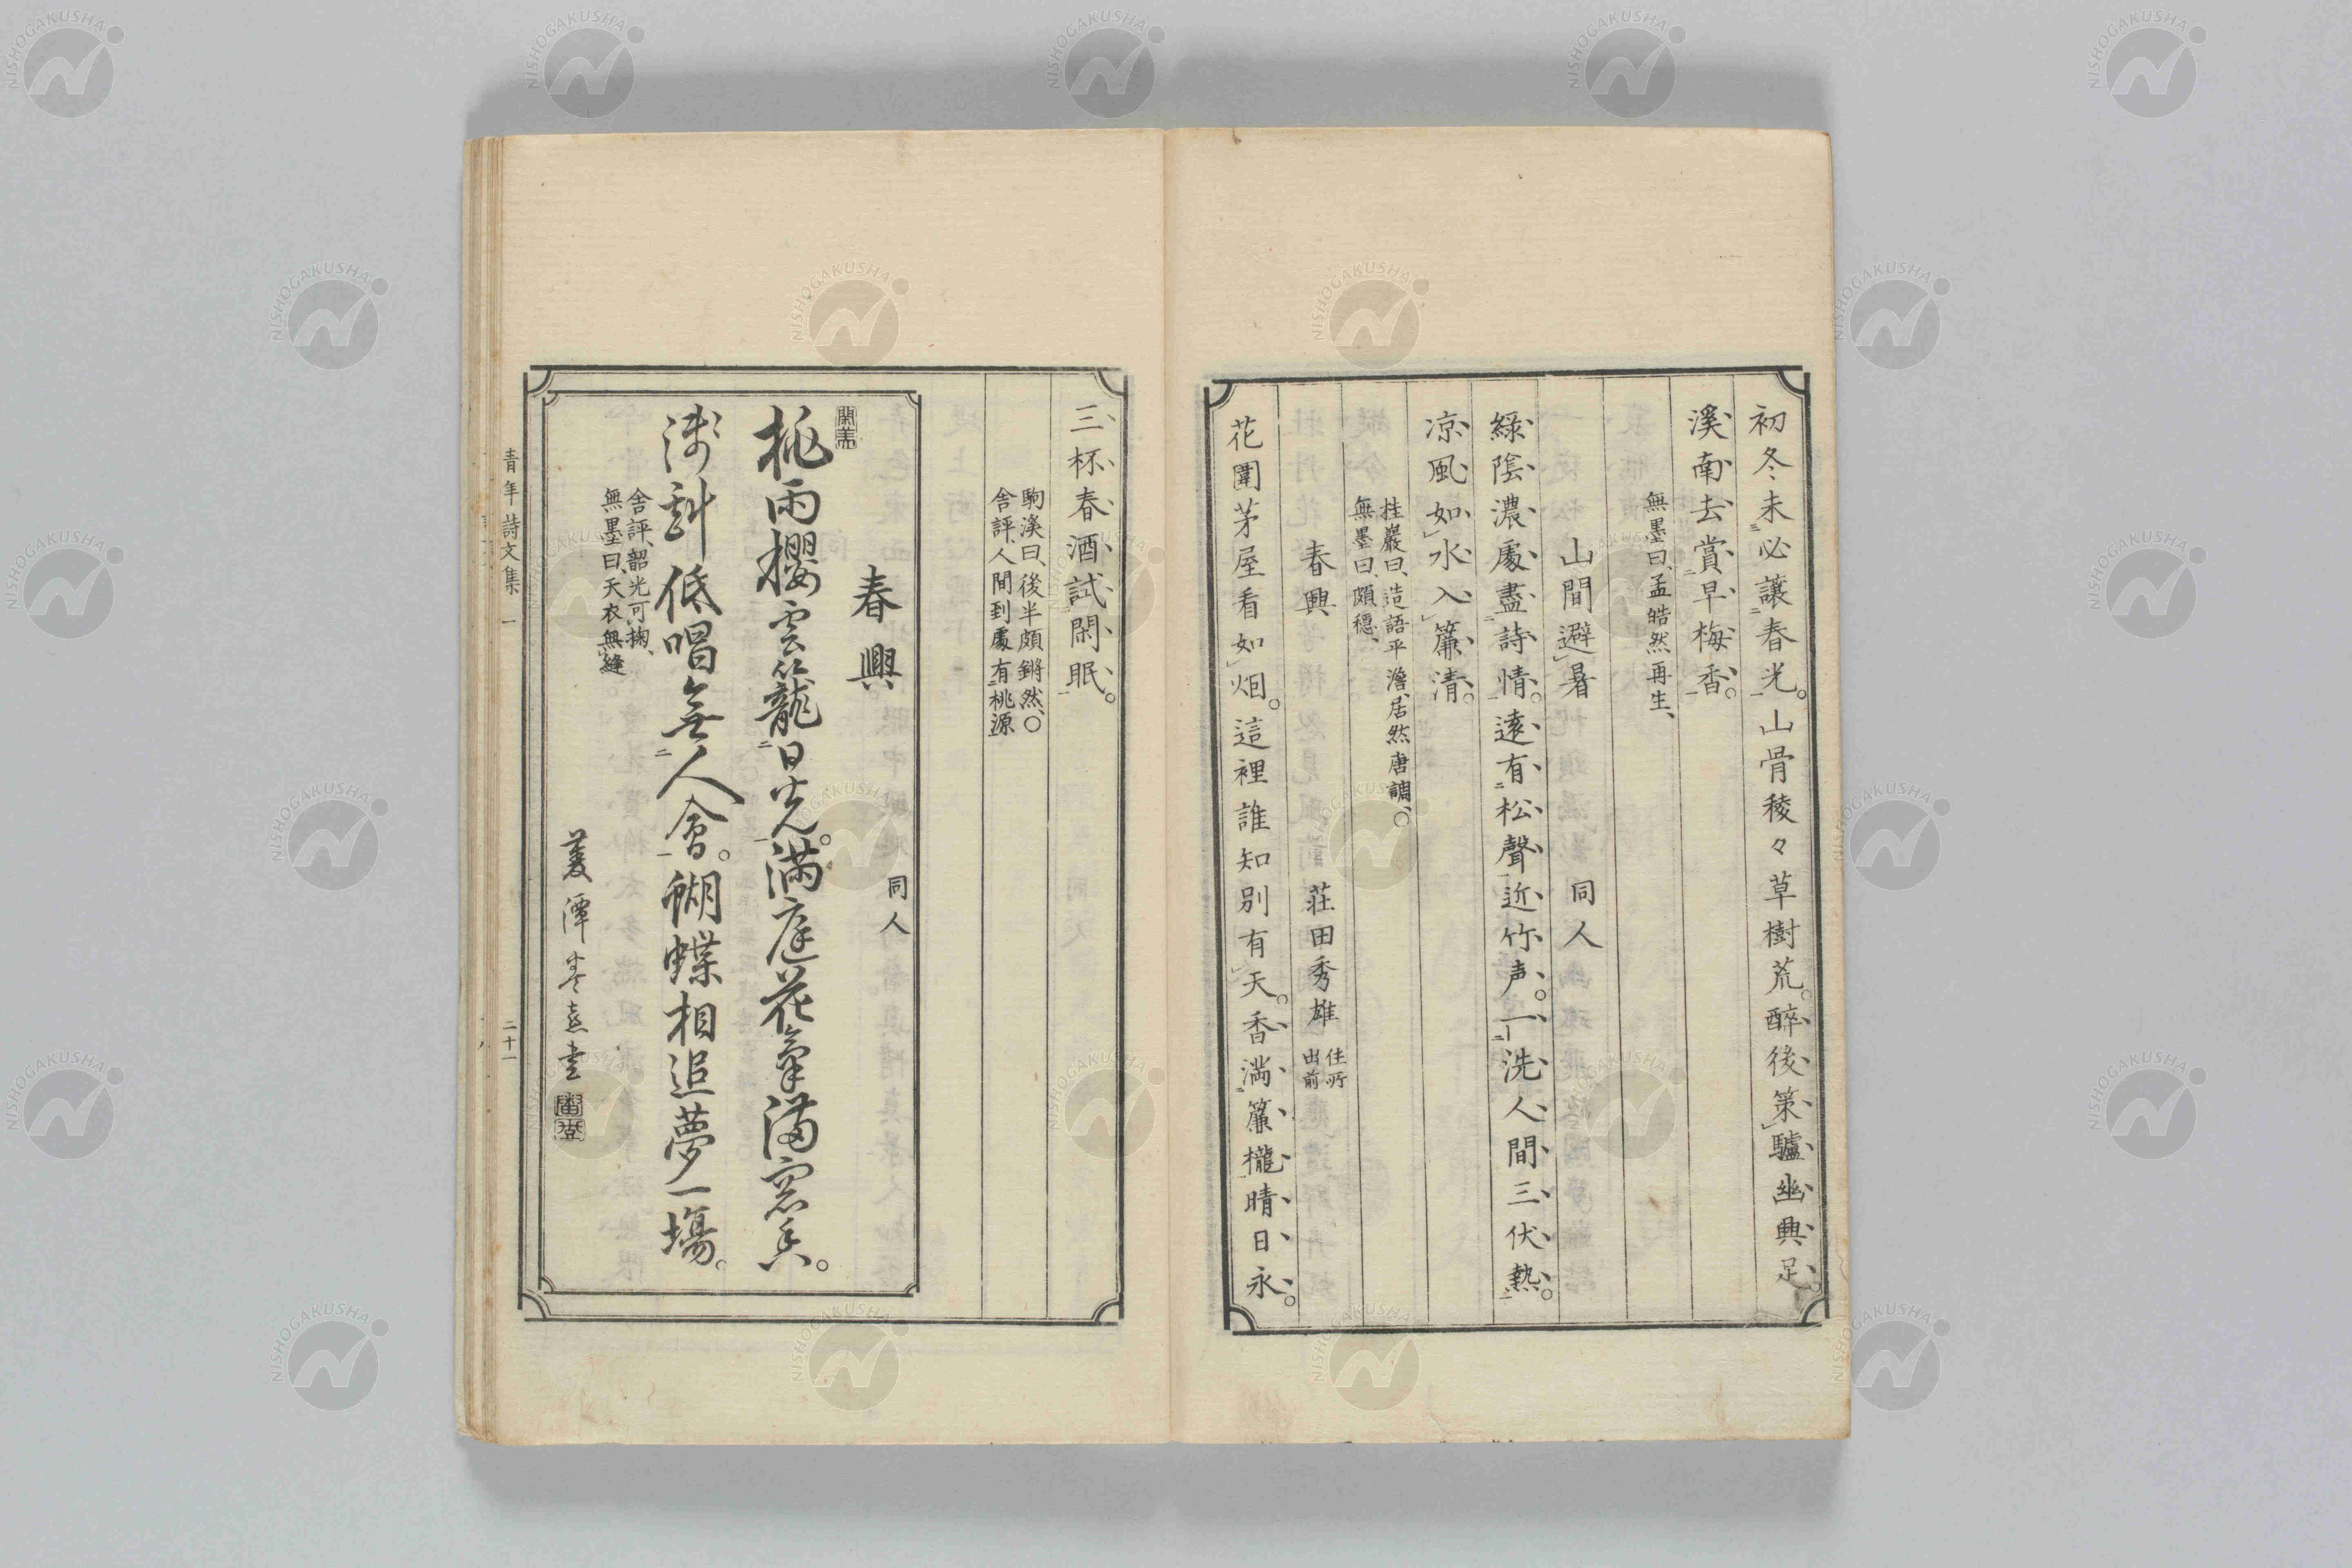 初冬未必讓春光。山骨稜々草樹荒。醉後策驢幽興足。
溪南去賞早梅香。
無墨曰、孟皓然再生、
山間避暑 同人
綠陰濃處盡詩情。遠有松聲近竹声。一洗人間三伏熱。
凉風如水入簾清。
桂巖曰、造語平澹、居然唐調、○
無墨曰、頗穩、
春興 莊田秀雄 住所出前
花圍茅屋看如烟。這裡誰知別有天。香滿簾櫳晴日永。
三杯春酒試閑眠。
駒溪曰、後半頗鏘然、○
舍評、人間到處有桃源
春興 同人
桃雨櫻雲籠日光。滿庭花氣滿窓香。
淺斟低唱無人會。蝴蝶相追夢一場。
舍評、韶光可掬、
無墨曰、天衣無縫
菱潭
青年詩文集 一 二十一
NISHOGAKUSHA